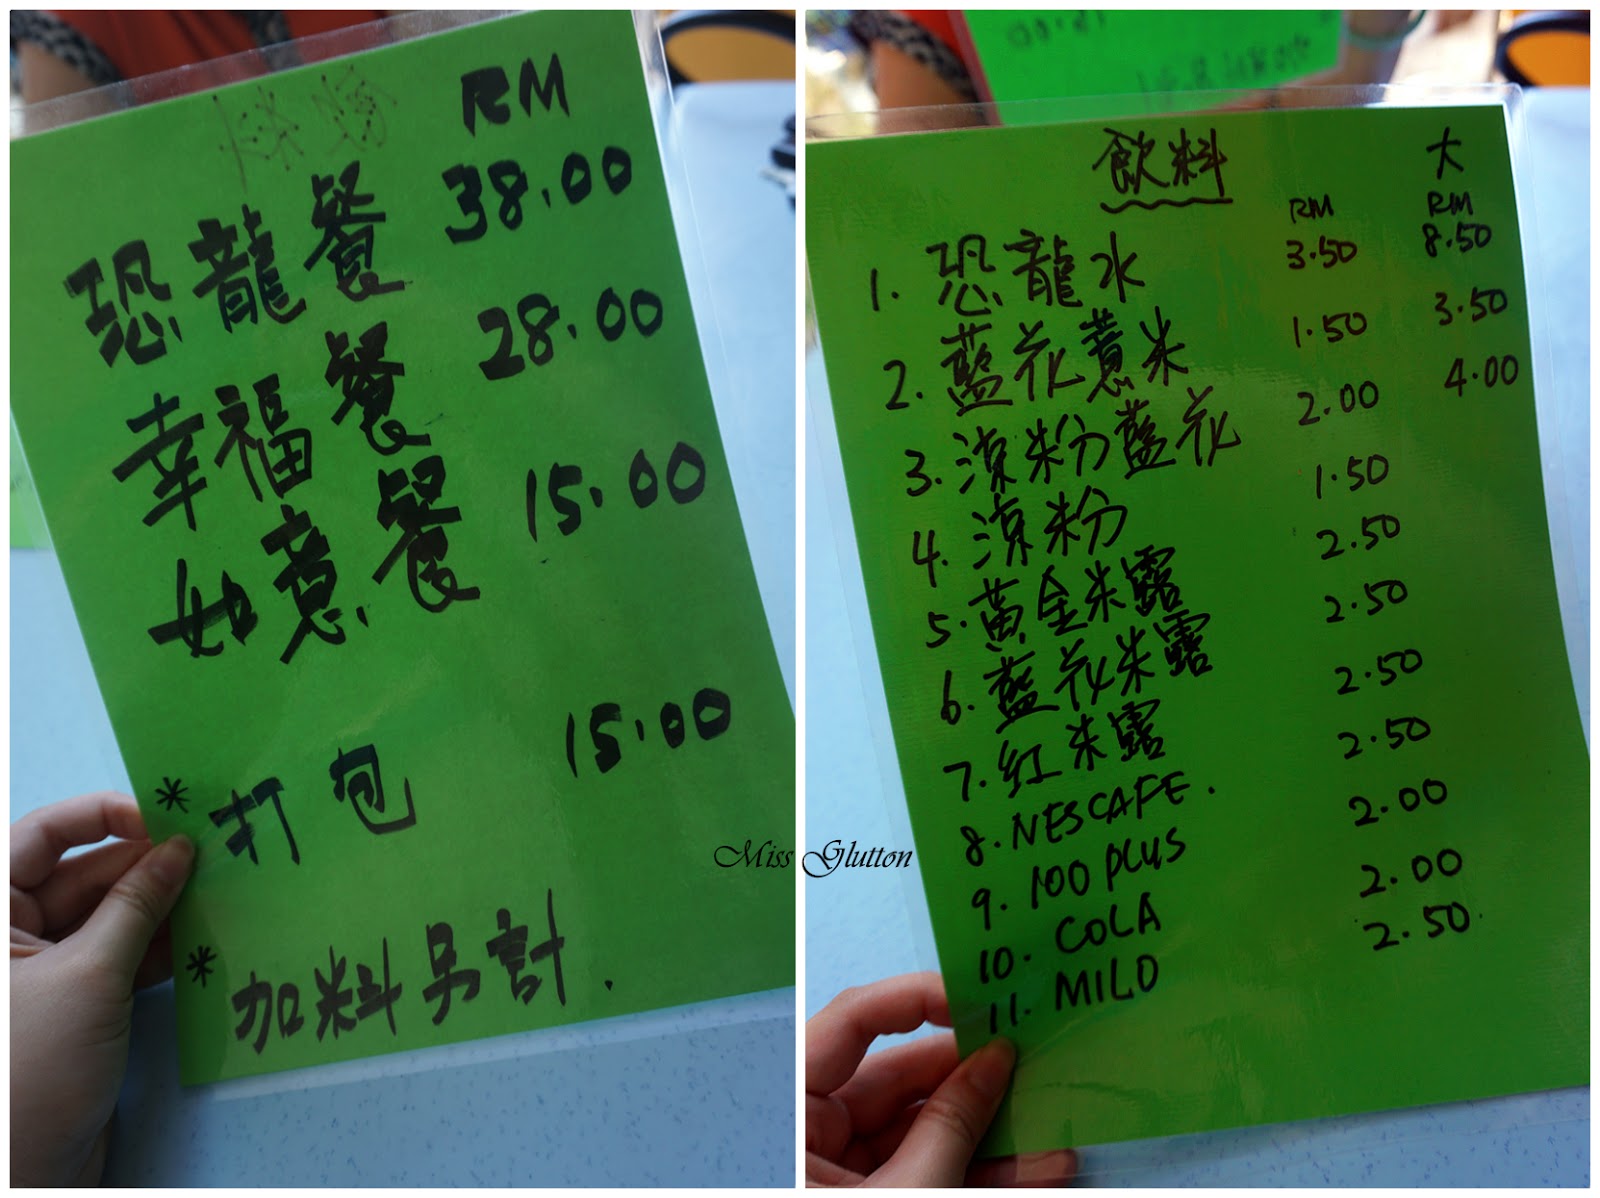 RM
恐龍餐 38.00
幸福餐 28.00
如意餐 15.00
* 打包 15.00
* 加料另計.
飲料 大
RM RM
1. 恐龍水 3.50 8.50
2. 藍花薏米 1.50 3.50
3. 涼粉藍花 2.00 4.00
4. 涼粉 1.50
5. 黃金米露 2.50
6. 藍花米露 2.50
7. 紅米露 2.50
8. NESCAFE. 2.50
9. 100 PLUS 2.00
10. COLA 2.00
11. MILO 2.50
Miss Glutton